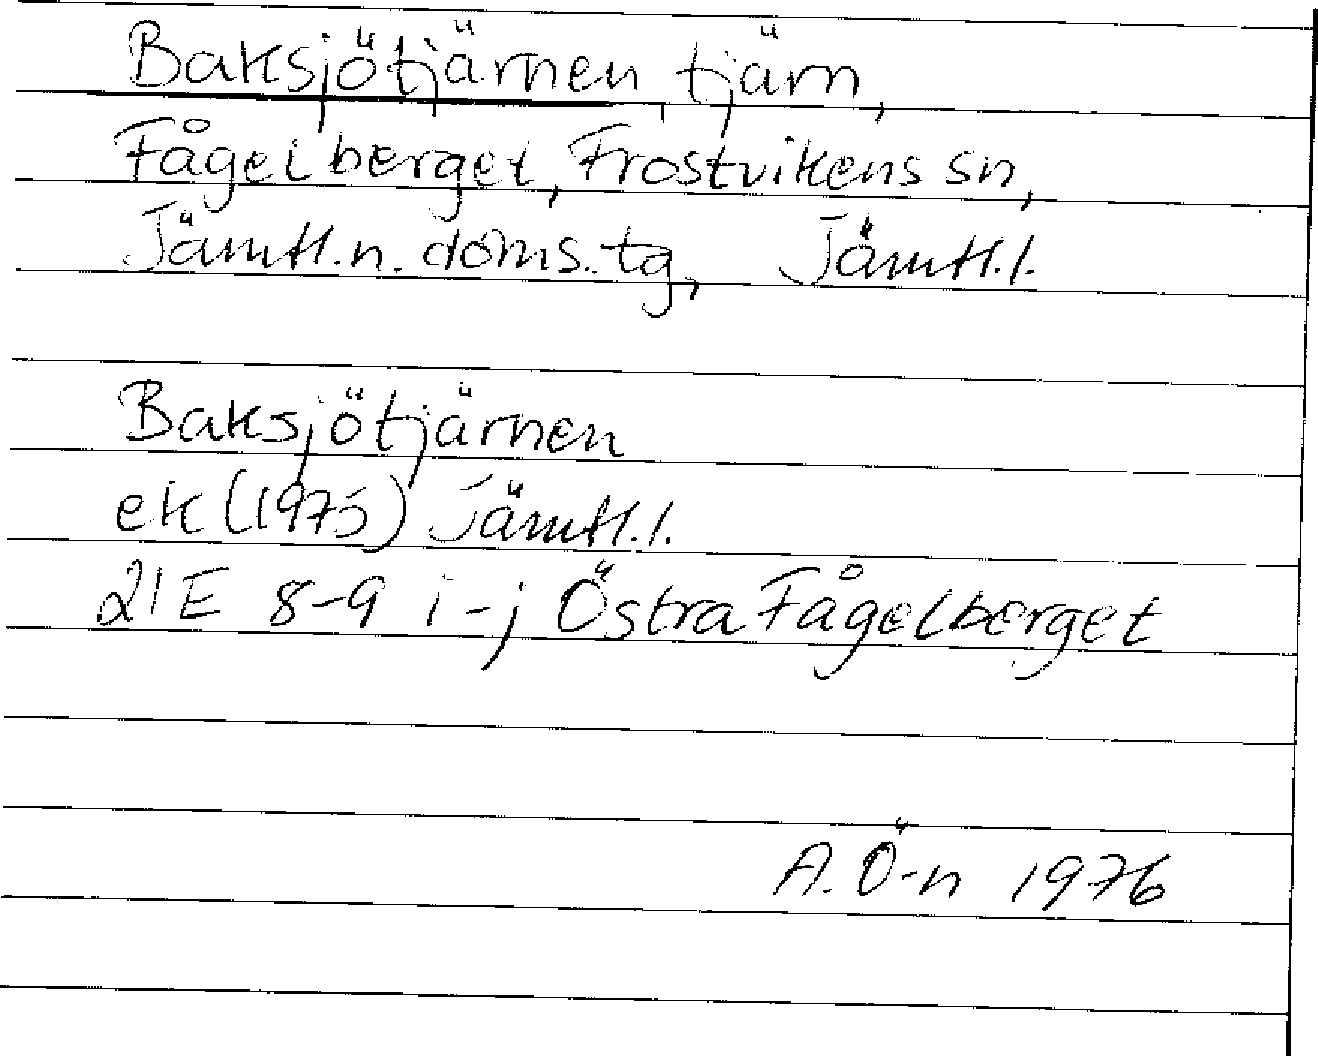 Baksjötjärnen, tjärn,
Fågelberget, Frostvikens sn,
Jämtl.n. doms. tg, Jämtl.l.
Baksjötjärnen
ek (1975) Jämtl.l.
21E 8-9 i-j Östra Fågelberget
A.Ö-n 1976